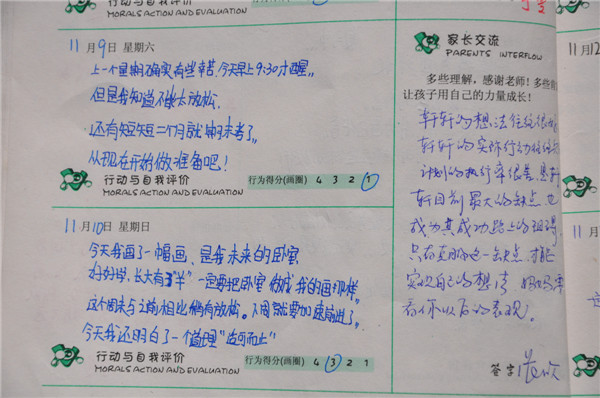 行动与自我评价
MORALS ACTION AND EVALUATION
行为得分(画圈) 4 3 2 1
11月9日 星期六
上一个星期确实有些辛苦,今天早上9:30才醒。
但是我知道不能太放松,
还有短短二个月就期末考了。
从现在开始做准备吧!
行动与自我评价
MORALS ACTION AND EVALUATION
行为得分(画圈) 4 3 2 1
11月10日 星期日
今天我画了一幅画,是我未来的卧室
好好学,长大有 一定要把卧室做成我的画那样。
这个周末与之前相比稍有放松。下周就要加速前进了。
今天我还明白了一个道理"适可而止"
行动与自我评价
MORALS ACTION AND EVALUATION
行为得分(画圈) 4 3 2 1
家长交流
PARENTS INTERFLOW
多些理解,感谢老师!多些
让孩子用自己的力量成长!
轩轩的想法往往很
轩轩的实际行动往往
计划的执行率很差,是
轩目前最大的缺点,也
成为其成功路上的阻碍。
只有克服这一缺点,才能
实现自己的想法,妈妈
看你以后的表现。
签字
11月12
11月